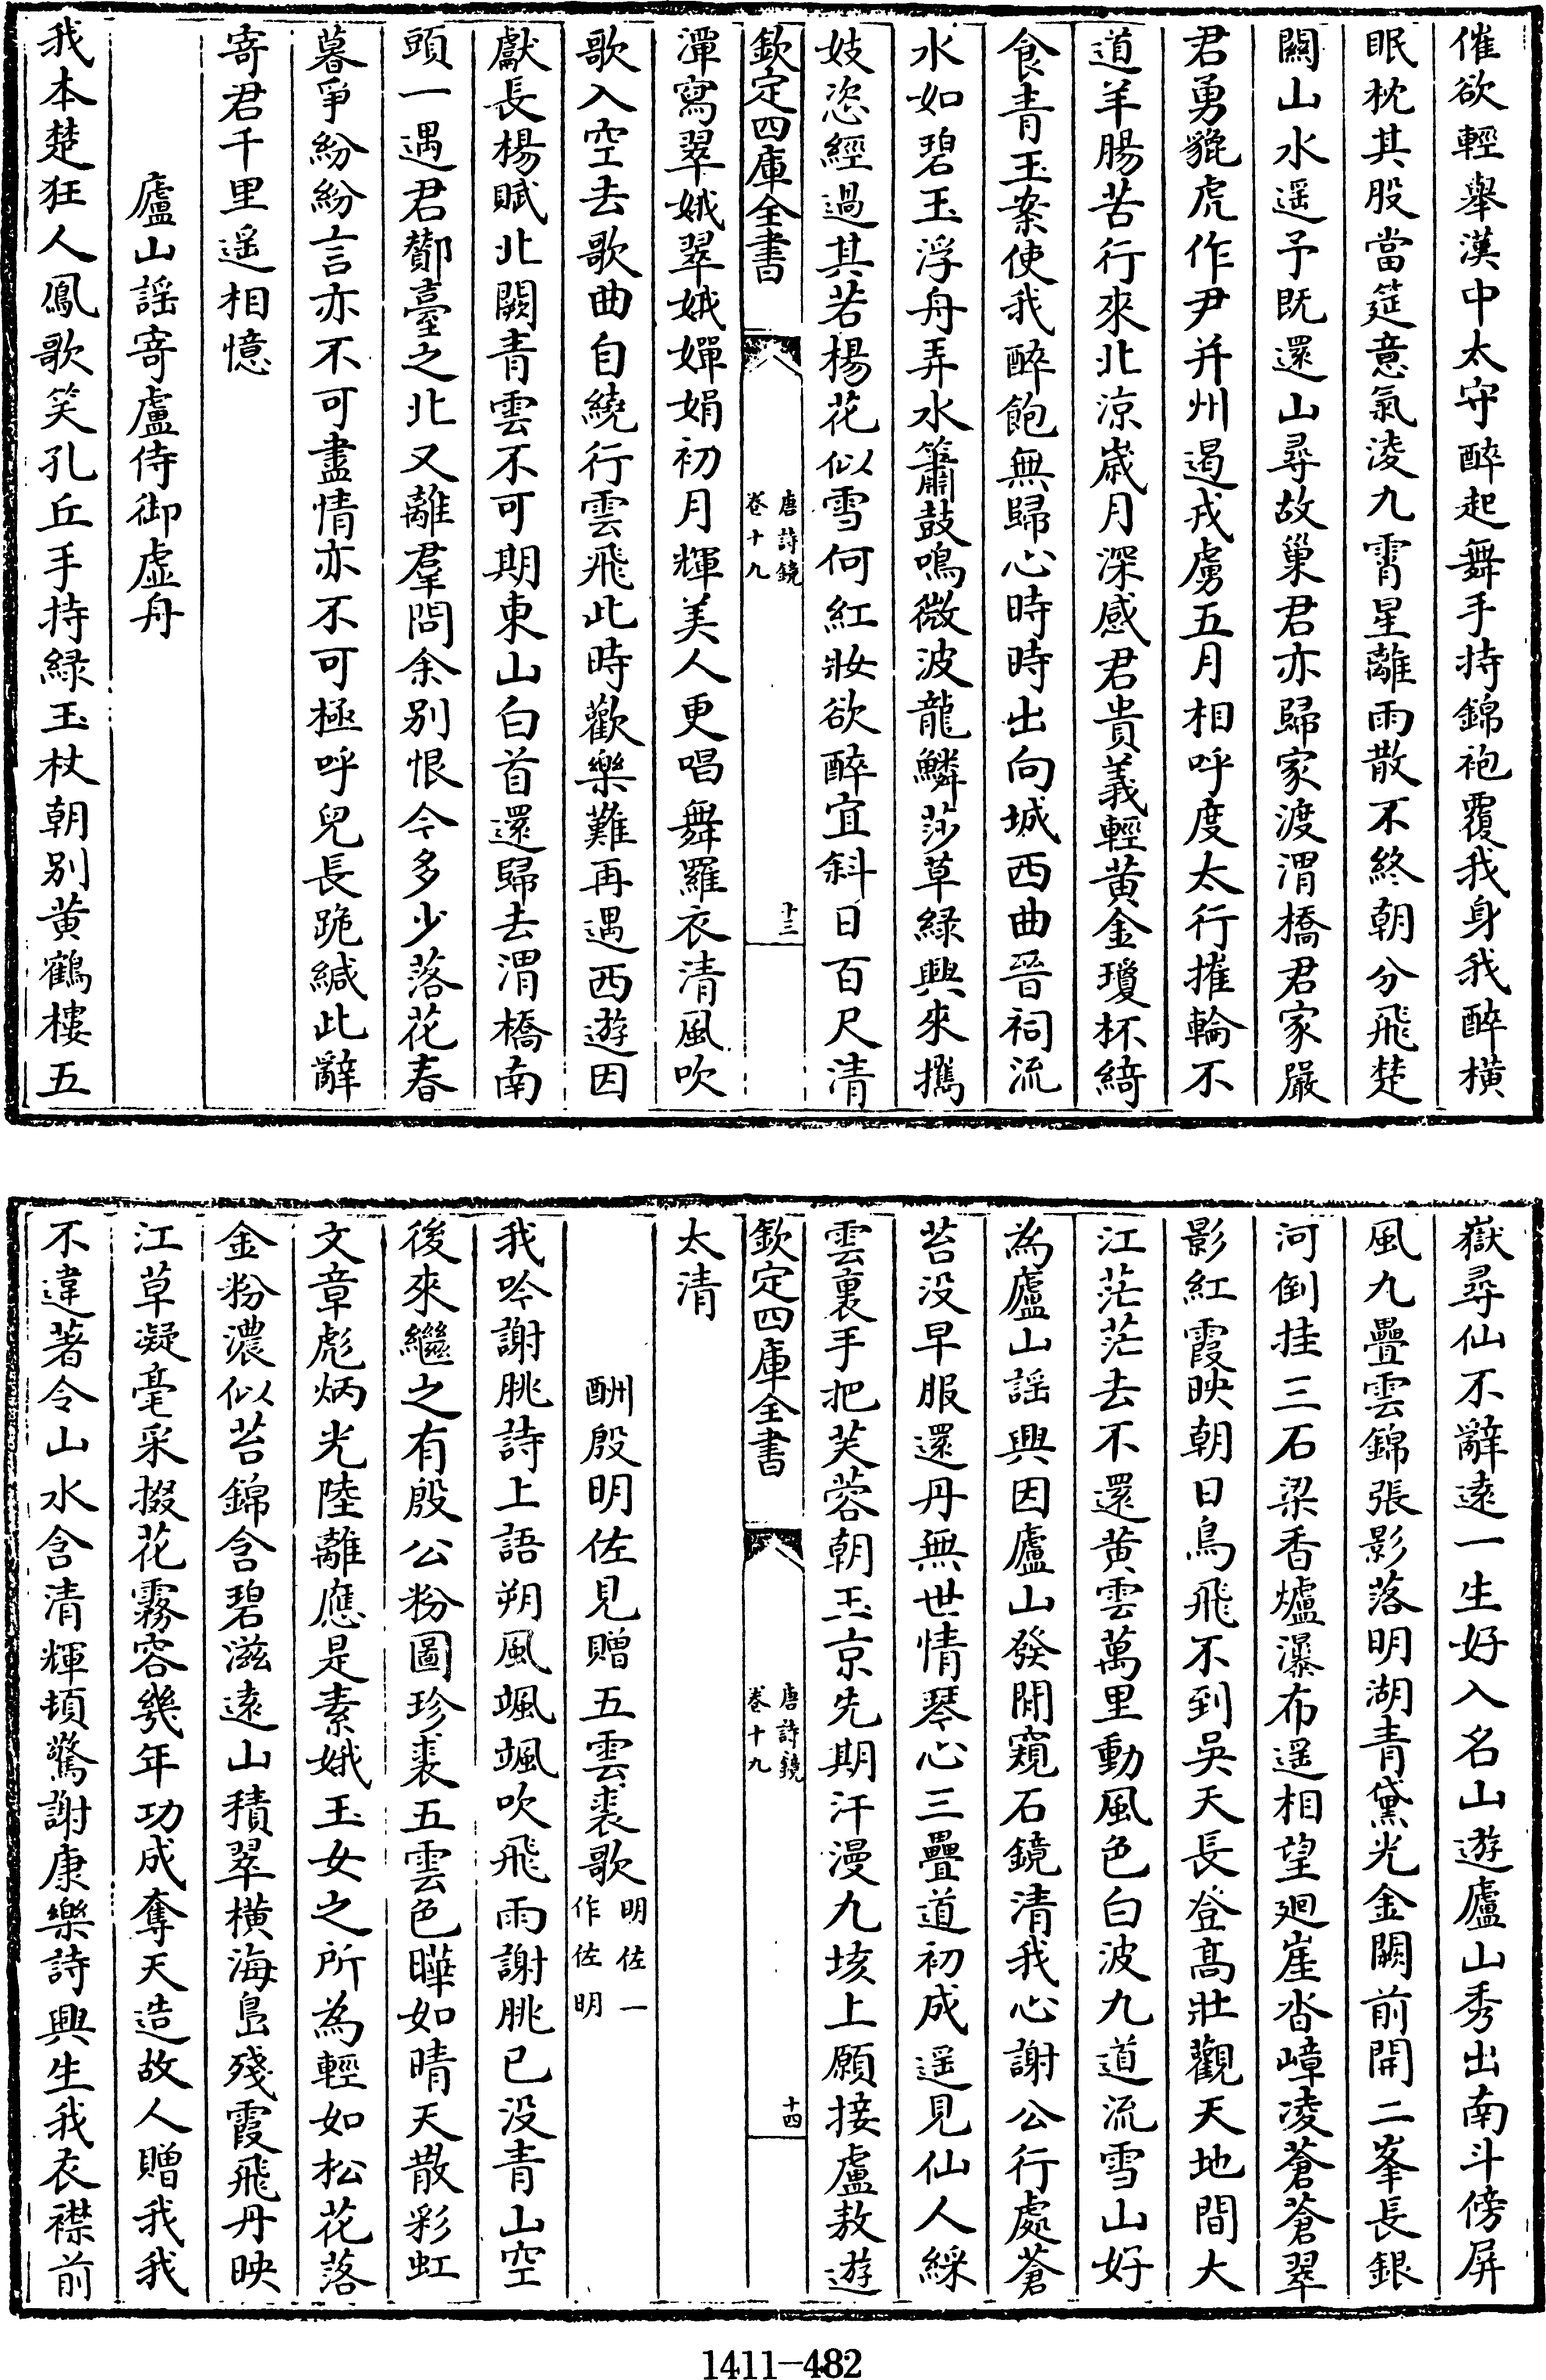 催欲輕舉漢中太守醉起舞手持錦袍覆我身我醉橫
眠枕其股當筵意氣淩九霄星離雨散不終朝分飛楚
關山水遥予既還山尋故巢君亦歸家渡渭橋君家嚴
君勇貔虎作尹并州遏戎虜五月相呼度太行摧輪不
道羊腸苦行來北涼歲月深感君貴義輕黄金瓊杯綺
食青玉案使我醉飽無歸心時時出向城西曲晉祠流
水如碧玉浮舟弄水簫鼓鳴微波龍鱗莎草綠興來攜
妓恣經過其若楊花似雪何紅妝欲醉宜斜日百尺清
欽定四庫全書
唐詩鏡
卷十九
十三
潭寫翠娥翠娥嬋娟初月輝美人更唱舞羅衣清風吹
歌入空去歌曲自繞行雲飛此時歡樂難再遇西遊因
獻長楊賦北闕青雲不可期東山白首還歸去渭橋南
頭一遇君酇臺之北又離羣問余别恨今多少落花春
暮爭紛紛言亦不可盡情亦不可極呼兒長跪緘此辭
寄君千里遥相憶
廬山謡寄盧侍御虛舟
我本楚狂人鳳歌笑孔丘手持緑玉杖朝别黄鶴樓五
嶽尋仙不辭遠一生好入名山遊廬山秀出南斗傍屏
風九疊雲錦張影落明湖青黛光金闕前開二峯長銀
河倒挂三石梁香爐瀑布遥相望廻崖沓嶂凌蒼蒼翠
影紅霞映朝日鳥飛不到吳天長登髙壯觀天地間大
江茫茫去不還黄雲萬里動風色白波九道流雪山好
為廬山謡興因廬山發閒窺石鏡清我心謝公行處蒼
苔没早服還丹無世情琴心三疊道初成遥見仙人綵
雲裏手把芙蓉朝玉京先期汗漫九垓上願接盧敖遊
欽定四庫全書
唐詩鏡
卷十九
十四
太清
酬殷明佐見贈五雲裘歌明佐一作佐明
我吟謝朓詩上語朔風颯颯吹飛雨謝朓已没青山空
後來繼之有殷公粉圖珍裘五雲色曄如晴天散彩虹
文章彪炳光陸離應是素娥玉女之所為輕如松花落
金粉濃似苔錦含碧滋遠山積翠橫海島殘霞飛丹映
江草凝毫采掇花露容幾年功成奪天造故人贈我我
不違著令山水含清輝頓驚謝康樂詩興生我衣襟前
1411-482